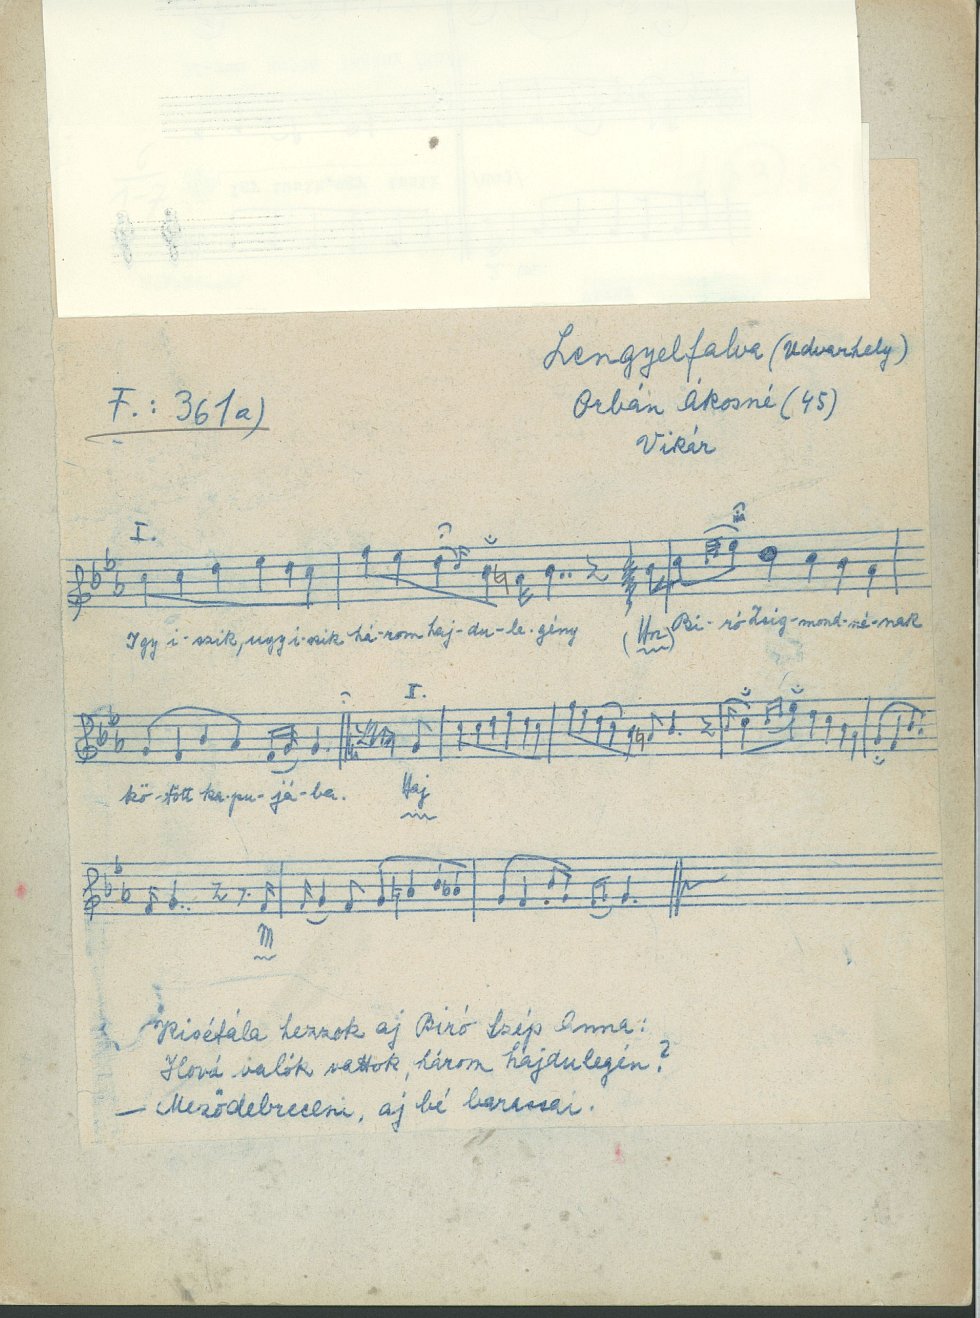 Lengyelfalva (Udvarhely)
F.: 361a)
Orbán Ákosné (45)
Vikár
I.
Igy i-szik, ugy i-szik há-rom haj-du-le-gény (Hn) Bi-ró Zsig-mond-né-nak
I.
kö-tött ka-pu-já-ba. Haj
M
Kisétála hezzok aj Biró Szép Anna:
Hová valók vattok, három hajdulegén?
— Meződebreceni, aj bé barassai.